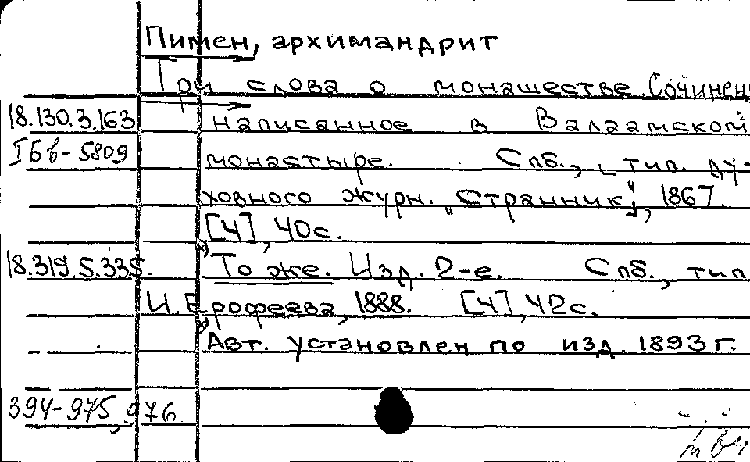 Пимен, архимандрит
Три слова о монашестве. Сочинен.
18.130.3.163 написанное в Валаамском
Iбв-5809 монастыре. Спб., тип. ду-
ховного журн. "Странник", 1867.
[4], 40с.
18.319.5.335. То же. Изд. 2-е. Спб., тип.
И. Ерофеева, 1888. [4], 42с.
Авт. установлен по изд. 1893г.
394-975,976